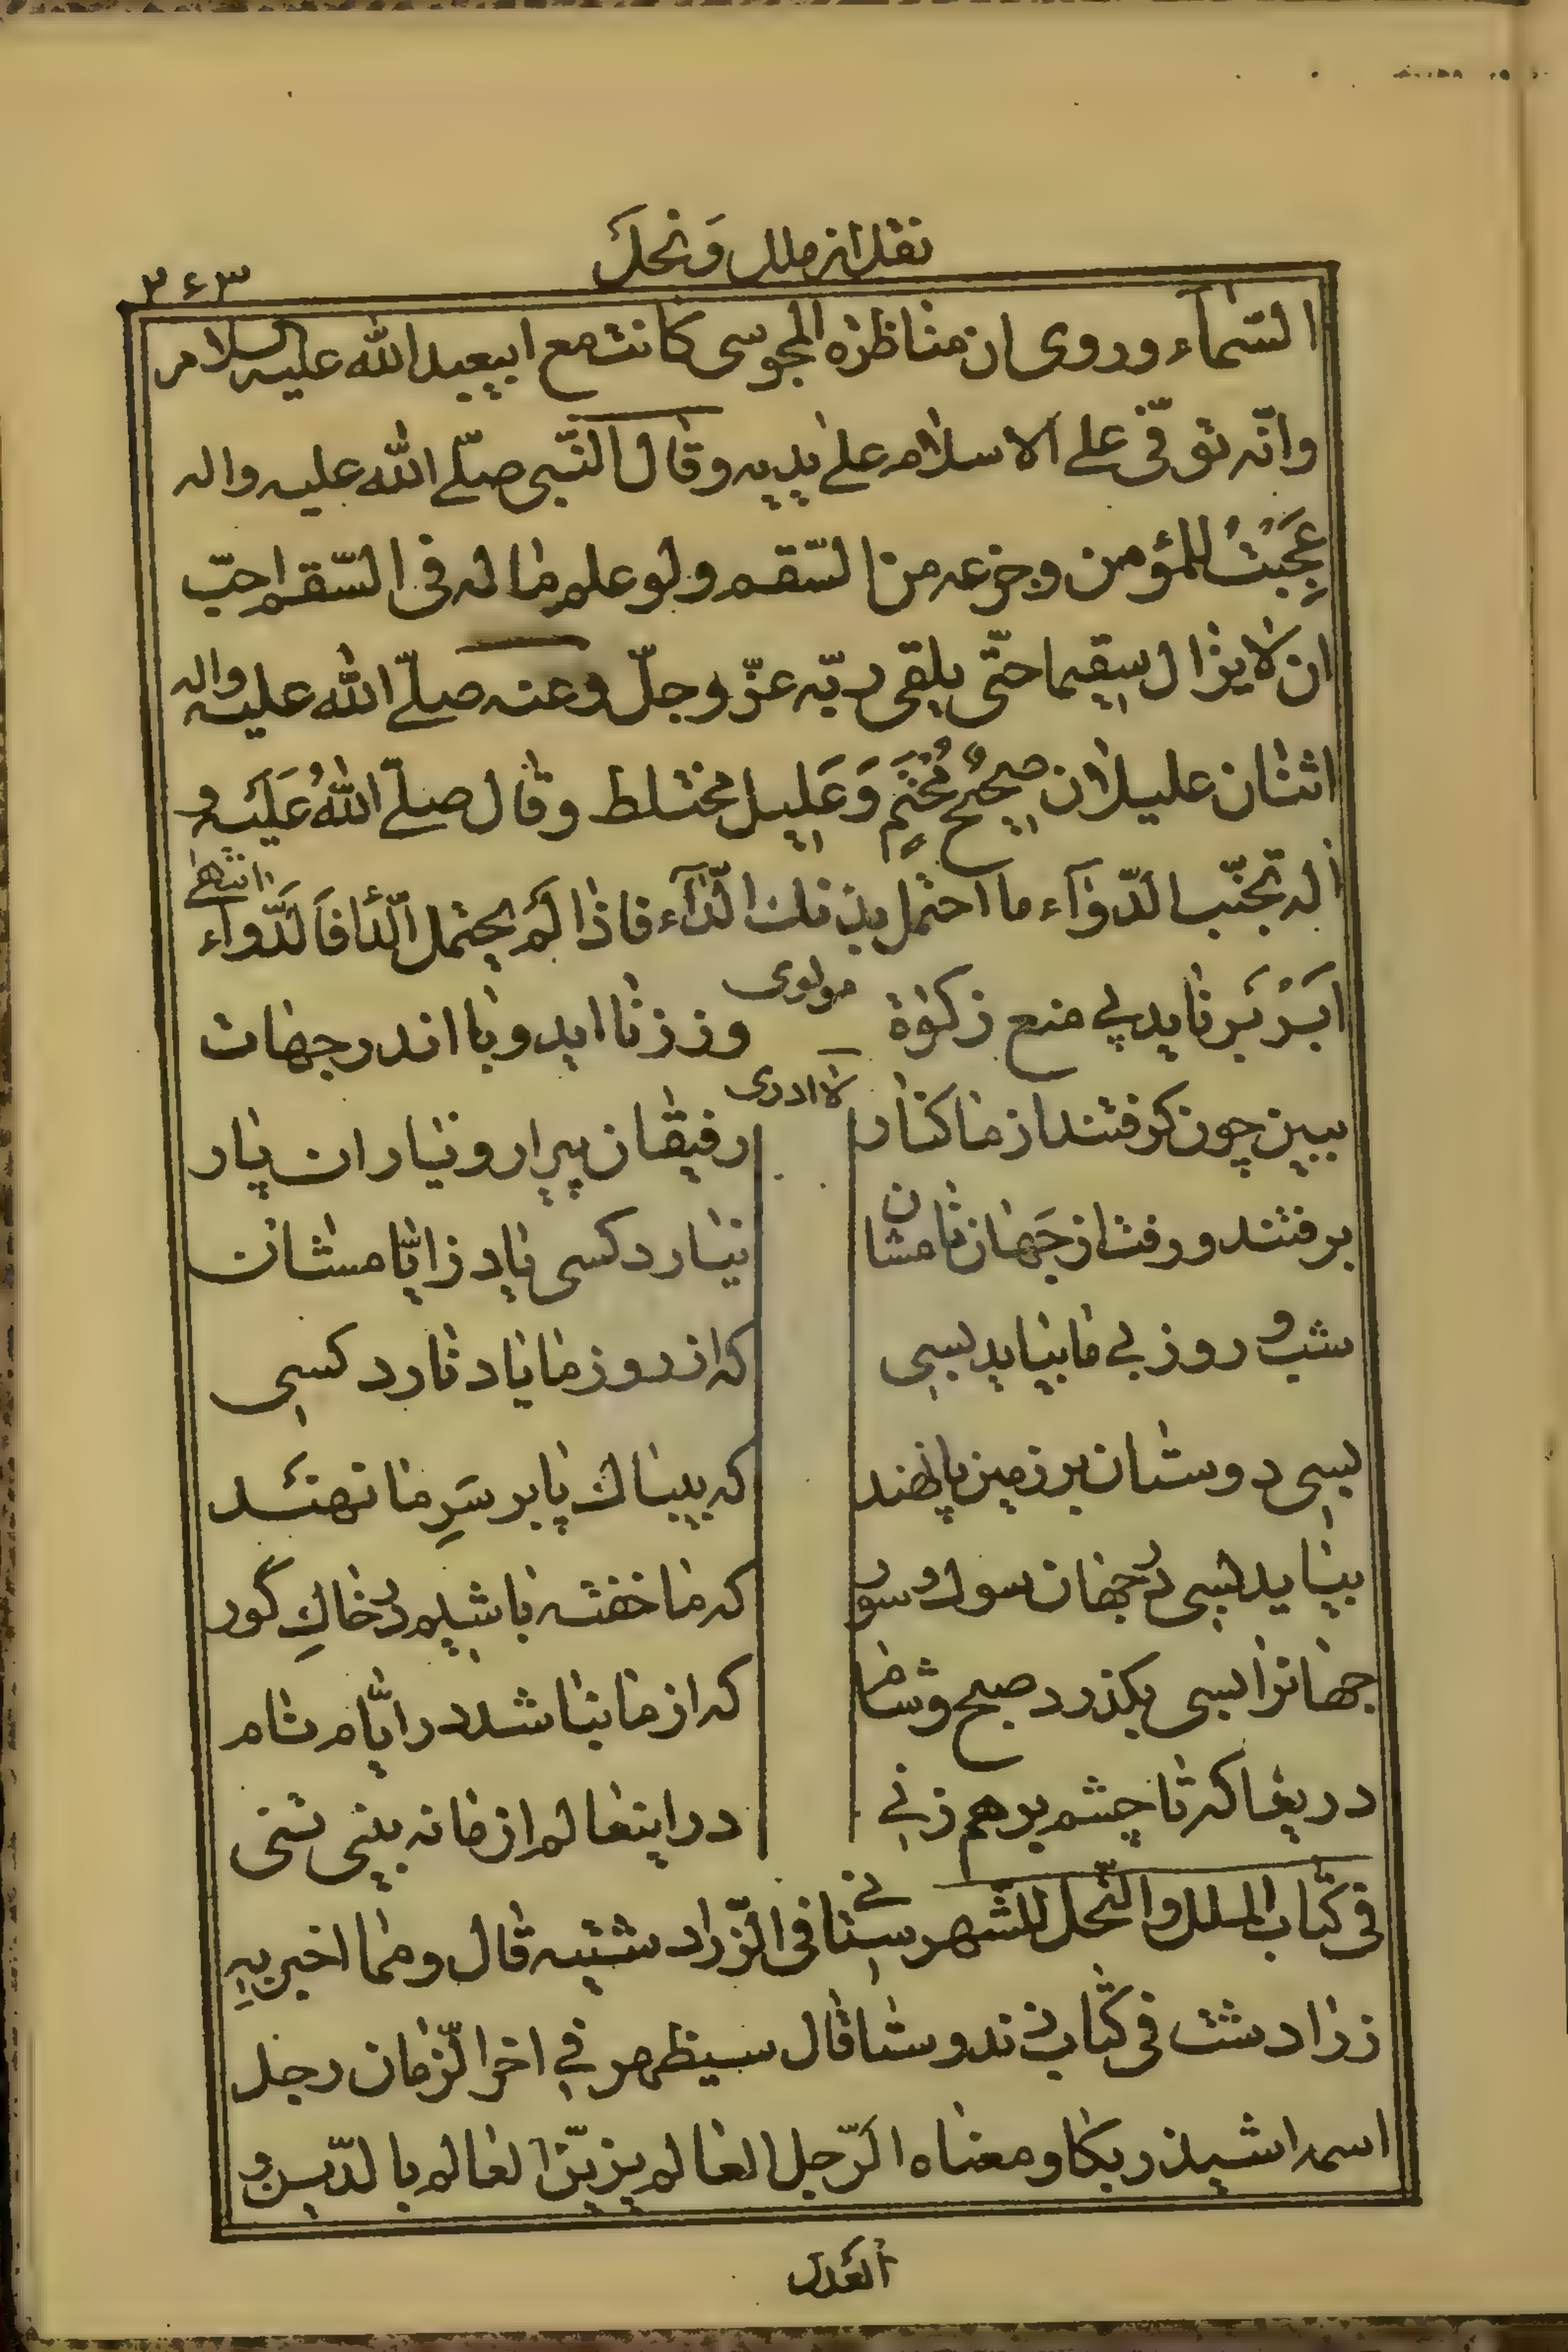 نقل از ملل وَنحلَ
۳۶۳
السّمآء وروی ان مناظره المجوسی کانت مع ابیعبد الله علیه السلام
وانّه توفّی علی الاسلام علی یدیه وقال النّبی صلّی الله علیه واله
عَجِبْتُ للمؤمن وجزعه من السّقم ولو علم ما له فی السّقم احبّ
ان لا یزال سقیما حتّی یلقی ربّه عزّ وجلّ وعنه صلّی الله علیه واله
اثنان علیلان صحیحٌ مُحْتَمٍ وَعَلیل مختلط وقال صلّی اللهُ عَلَیه و
اله تجنّب الدّوآء ما احتمل بدنک الدّآء فاذا لَم یحتمل الدّاء فَالدّواء انتهی
ابَرْ بَر ناید پی منع زکوة
مولوی
وز زنا اید وبا اندر جهات
لا ادری
ببین چون کرفتند از ما کنار
رفیقان پیرار و یاران پار
برفتند و رفت از جَهان نامشان
نیارد کسی یاد زایّامشان
شب و روز بی ما بیاید بسی
که از روز ما یاد نارد کسی
بسی دوستان بر زمین پا نهند
که بیباک پا بر سَرِ ما نهند
بیاید بسی در جهان سوک و سور
که ما خفته باشیم در خاکِ گور
جهانرا بسی بکذرد صبح و شام
که از ما نباشد در ایّام نام
دریغا که تا چشم بر هم زنی
در اینعالم از ما نه بینی تنی
فی کتاب الملل والنّحل للشّهرستانی فی الزّرادشتیه قال ومما اخبر بهِ
زرادشت فی کتاب زندوستا قال سیظهر فی اخر الزّمان رجل
اسمه اشیذربکا ومعناه الرّجل العالم یزیّن العالم بالدّین و
العَدل